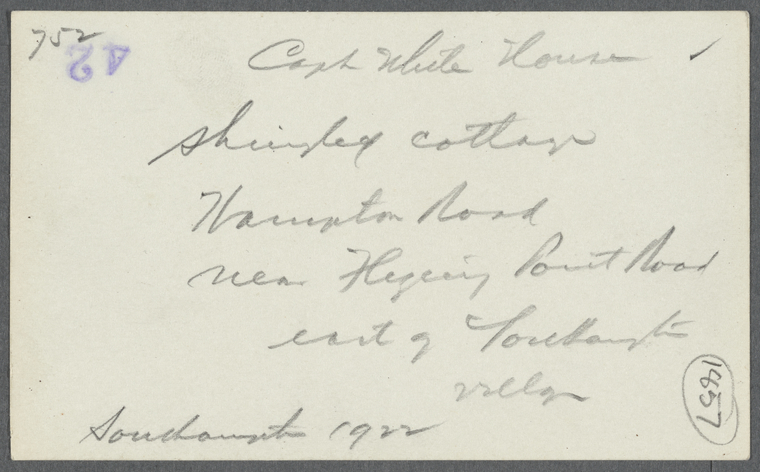 752
42
Capt White House
shingled cottage
Hampton Road
near Flying Point Road
east of Southampton
village
Southampton 1922
1657